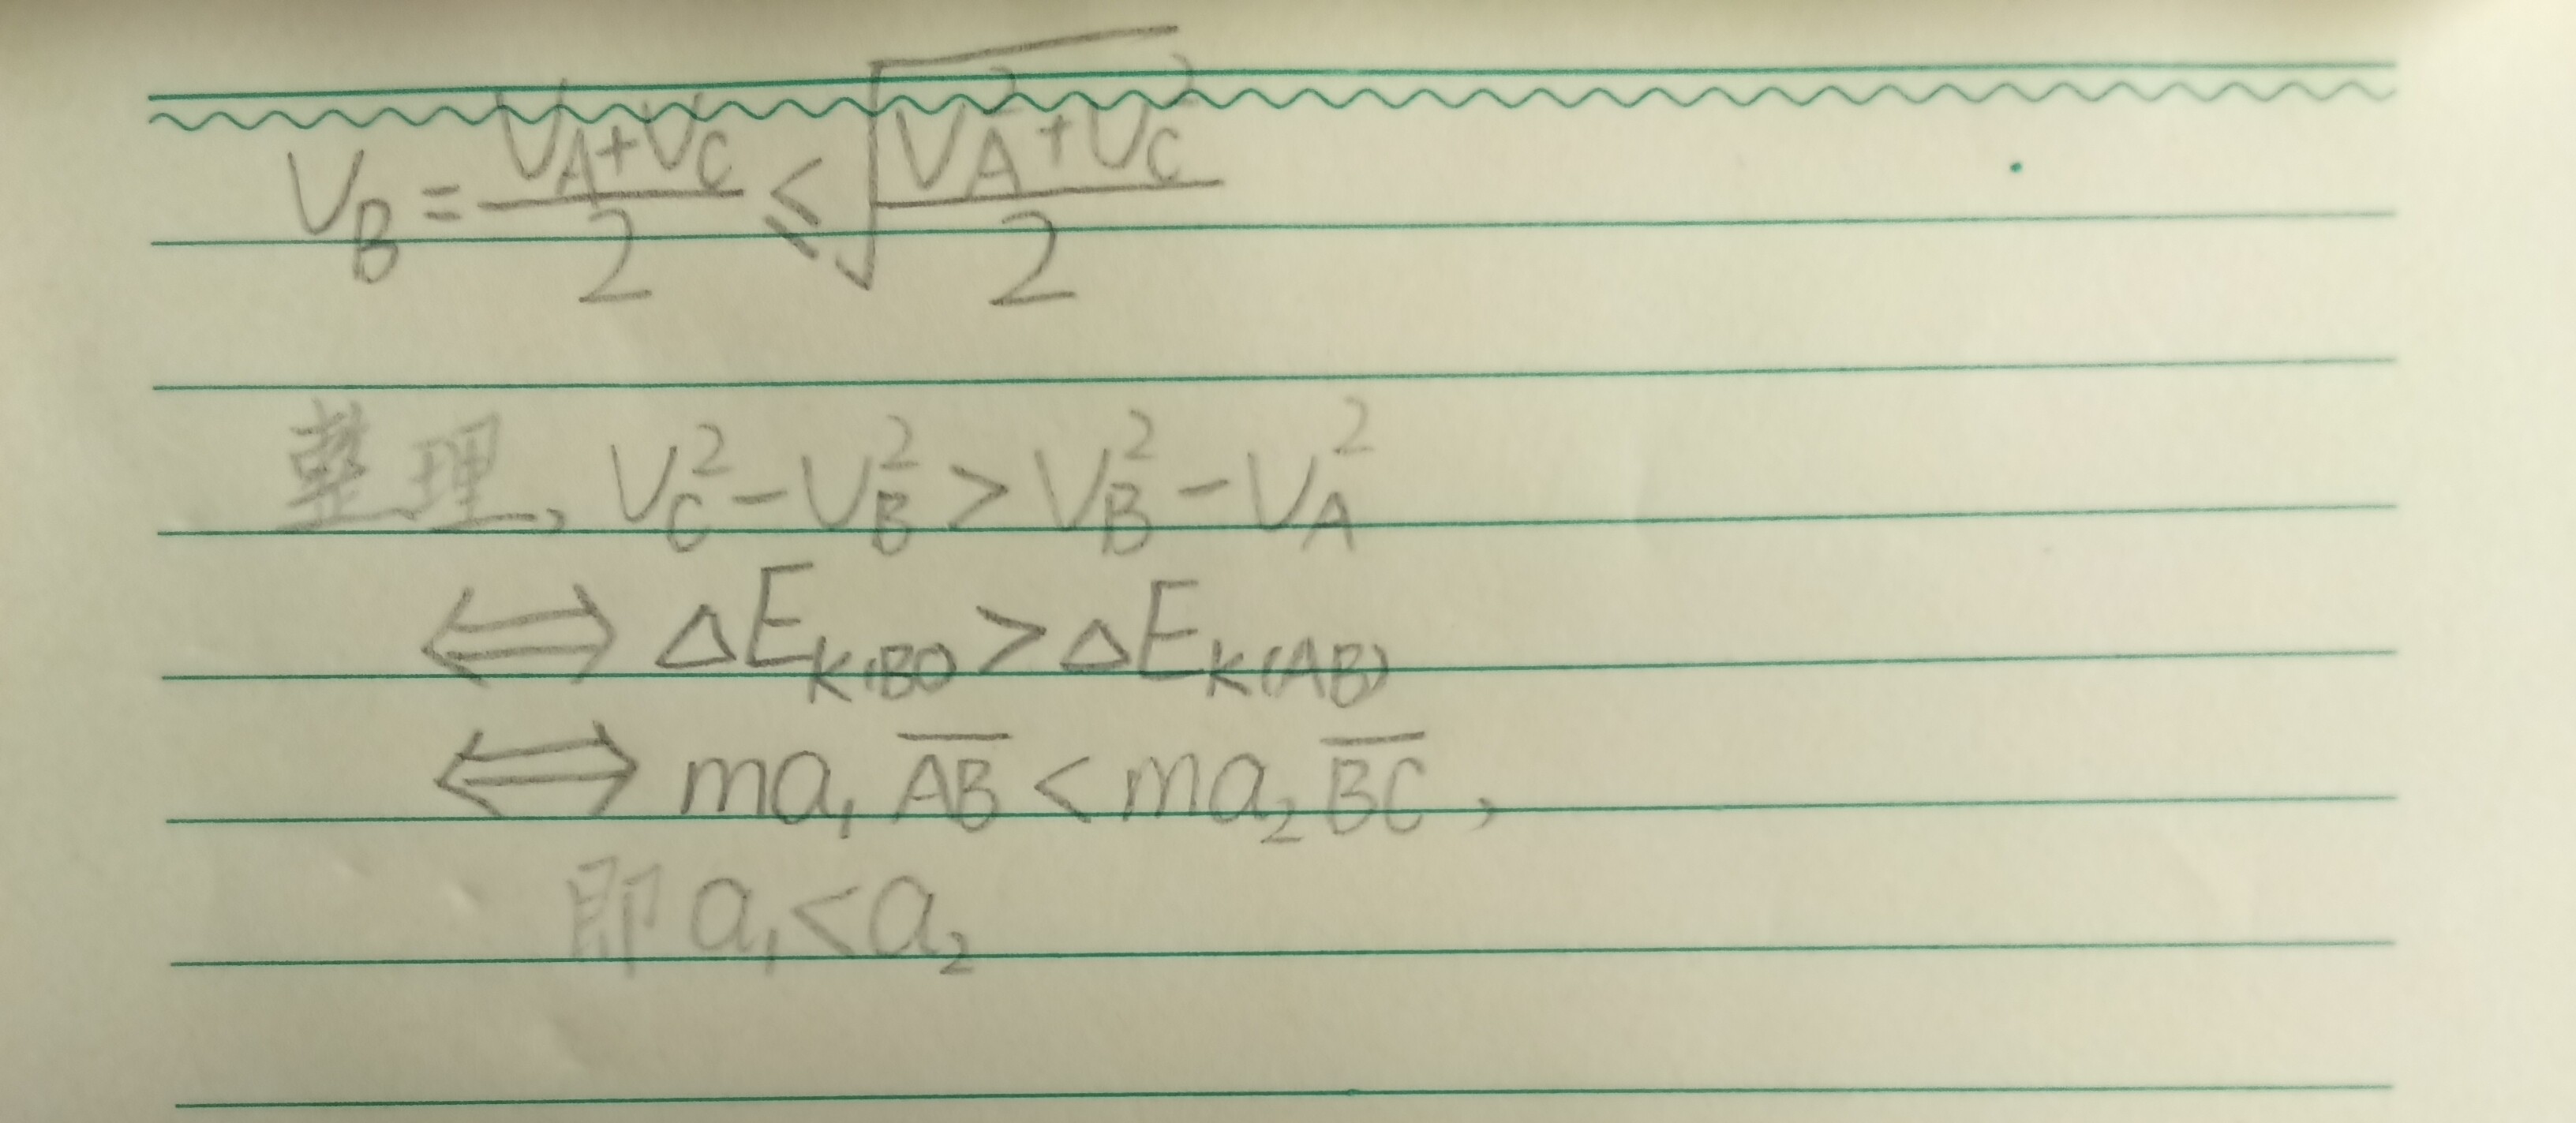 V_B = (V_A + V_C)/2 ≤ √((V_A² + V_C²)/2)
整理, V_C² − V_B² > V_B² − V_A²
⟺ ΔE_K(BC) > ΔE_K(AB)
⟺ ma₁ A̅B̅ < ma₂ B̅C̅,
即 a₁ < a₂